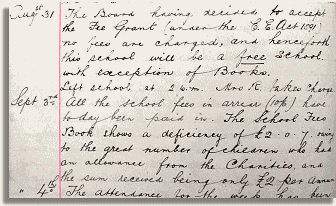 Augst 31 The Board having decided to accept
the Fee Grant (under the E.E. Act 1891)
no fees are charged, and henceforth
this school will be a free School.
with exception of Books.
Left school at 2 Mrs K. takes charge
Sept 3rd All the school fees in arrear (10/-) have
to day been paid in. The School Fees
Book shows a deficiency of £2.0.7. owing
to the great number of children who has
an allowance from the Charities, and
the sum received being only £2 per Annum
" 4th The Attendance for the week has been